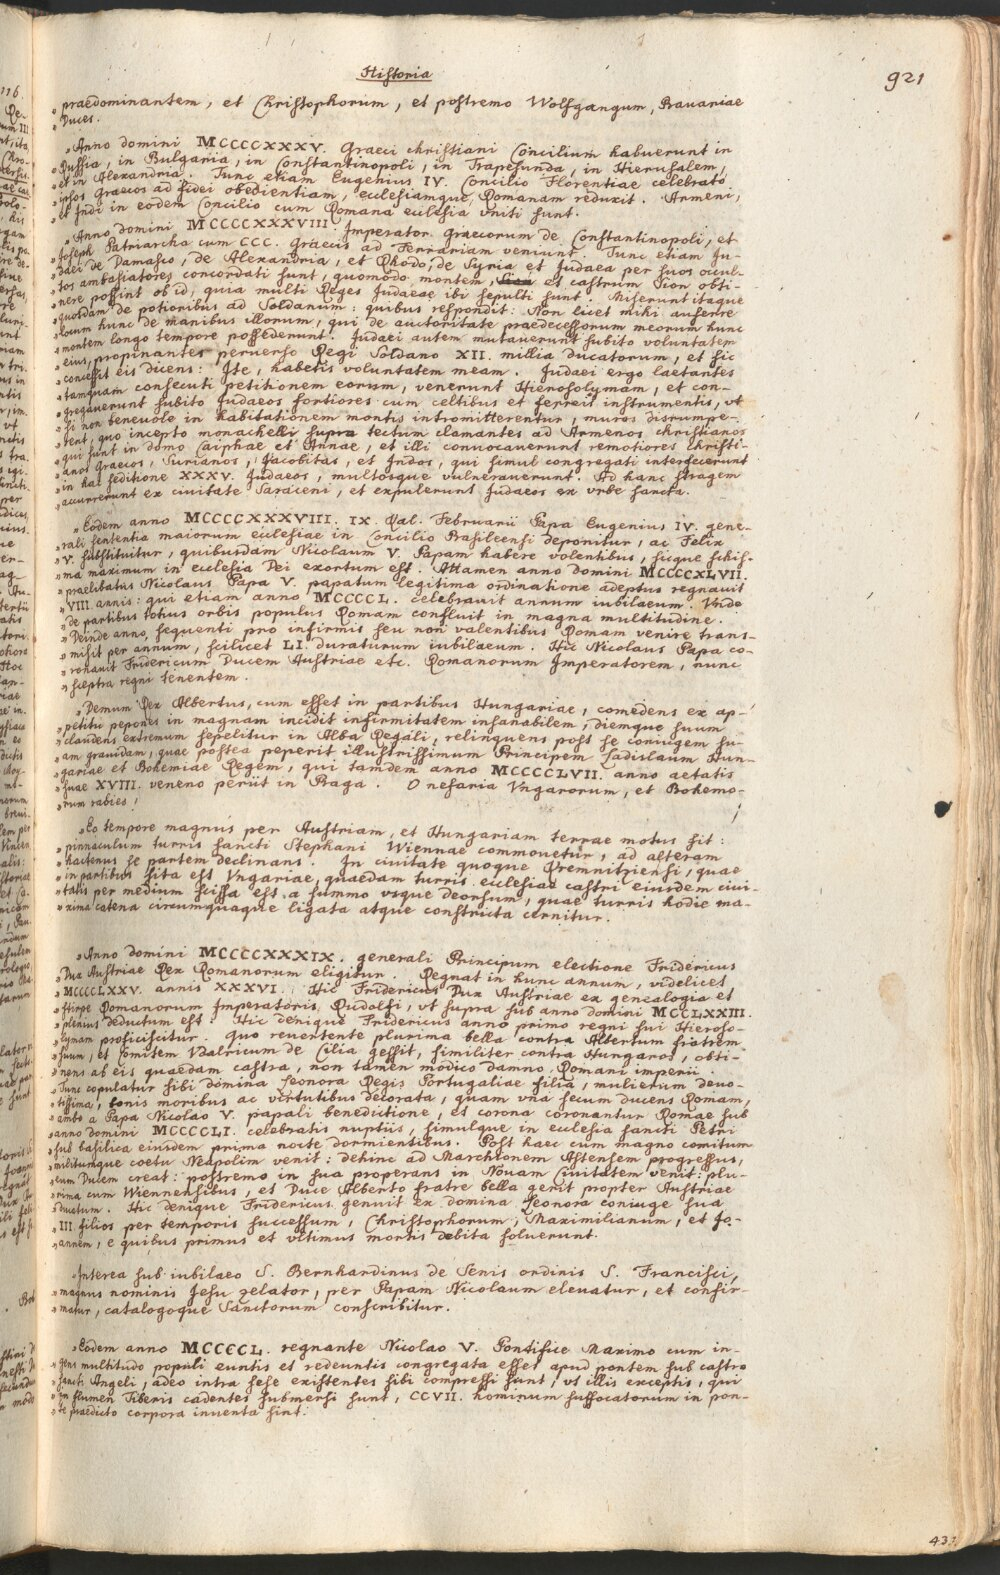 Historia
921
„praedominantem, et Christophorum, et postremo Wolfgangum, Bavariae
„Duces.
„Anno domini MCCCCXXXV. Graeci christiani Concilium habuerunt in
„Russia, in Bulgaria, in Constantinopoli, in Trapesunda, in Hierusalem,
„et in Alexandria. Tunc etiam Eugenius IV. Concilio Florentiae celebrato
„ipsos Graecos ad fidei obedientiam, ecclesiamque Romanam reduxit. Armeni,
„et Indi in eodem Concilio cum Romana ecclesia vniti sunt.
„Anno domini MCCCCXXXVIII. Imperator Graecorum de Constantinopoli, et
„Joseph Patriarcha cum CCC. Graecis ad Ferrariam veniunt. Tunc etiam Ju-
„daei de Damasco, de Alexandria, et Rhodo, de Syria et Judaea per suos occul-
„tos ambasiatores concordati sunt, quomodo montem, et castrum Sion obti-
„nere possint ob id, quia multi Reges Judaeae ibi sepulti sunt. Miserunt itaque
„quosdam de potioribus ad Soldanum: quibus respondit: Non licet mihi auferre
„locum hunc de manibus illorum, qui de auctoritate praedecessorum meorum hunc
„montem longo tempore possederunt. Judaei autem mutauerunt subito voluntatem
„eius, propinantes peruerso Regi Soldano XII. millia ducatorum, et sic
„concessit eis dicens: Ite, habetis voluntatem meam. Judaei ergo laetantes
„tamquam consecuti petitionem eorum, venerunt Hierosolymam, et con-
„gregauerunt subito Judaeos fortiores cum celtibus et ferreis instrumentis, vt
„si non beneuole in habitationem montis intromitterentur, muros disrumpe-
„rent, quo incepto monachelli supra tectum clamantes ad Armenos christianos
„qui sunt in domo Caiphae et Annae, et illi conuocauerunt remotiores christi-
„anos Graecos, Surianos, Jacobitas, et Indos, qui simul congregati interfecerunt
„in hac seditione XXXV. Judaeos, multosque vulnerauerunt. Ad hanc stragem
„accurrerunt ex ciuitate Saraceni, et expulerunt Judaeos ex vrbe sancta.
„Eodem anno MCCCCXXXVIII. IX. Kal. Februarii Papa Eugenius IV. gene-
„rali sententia maiorum ecclesiae in Concilio Basileensi deponitur, ac Felix
„V. substituitur, quibusdam Nicolaum V. Papam habere volentibus, sicque schis-
„ma maximum in ecclesia Dei exortum est. Attamen anno domini MCCCCXLVII.
„praelibatus Nicolaus Papa V. papatum legitima ordinatione adeptus regnauit
„VIII annis: qui etiam anno MCCCCL. celebrauit annum iubilaeum. Vnde
„de partibus totius orbis populus Romam confluit in magna multitudine.
„Deinde anno, sequenti pro infirmis seu non valentibus Romam venire trans-
„misit per annum, scilicet LI. duraturum iubilaeum. Hic Nicolaus Papa co-
„ronauit Fridericum Ducem Austriae etc. Romanorum Imperatorem, nunc
„sceptra regni tenentem.
„Demum Rex Albertus, cum esset in partibus Hungariae, comedens ex ap-
„petitu pepones in magnam incidit infirmitatem insanabilem, diemque suum
„claudens extremum sepelitur in Alba Regali, relinquens post se coniugem su-
„am grauidam, quae postea peperit illustrissimum Principem Ladislaum Hun-
„gariae et Bohemiae Regem, qui tamdem anno MCCCCLVII. anno aetatis
„suae XVIII. veneno periit in Praga. O nefaria Vngarorum, et Bohemo-
„rum rabies!
„Eo tempore magnus per Austriam, et Hungariam terrae motus fit:
„pinnaculum turris sancti Stephani Wiennae commouetur, ad alteram
„hactenus se partem declinans. In ciuitate quoque Kremnitziensi, quae
„in partibus sita est Vngariae, quaedam turris ecclesiae castri eiusdem ciui-
„tatis per medium scissa est a summo vsque deorsum, quae turris hodie ma-
„xima catena circumquaque ligata atque constricta cernitur.
„Anno domini MCCCCXXXIX. generali Principum electione Fridericus
„Dux Austriae Rex Romanorum eligitur. Regnat in hunc annum, videlicet
„MCCCCLXXV. annis XXXVI. Hic Fridericus Dux Austriae ex genealogia et
„stirpe Romanorum Imperatoris Rudolfi, vt supra sub anno domini MCCLXXIII.
„plenius deductum est. Hic denique Fridericus anno primo regni sui Hieroso-
„lymam proficiscitur. Quo reuertente plurima bella contra Albertum fratrem
„suum, et Comitem Vdalricum de Cilia gessit, similiter contra Hungaros, obti-
„nens ab eis quaedam castra, non tamen modico damno Romani imperii.
„Tunc copulatur sibi domina Leonora Regis Portugaliae filia, mulierum deuo-
„tissima, bonis moribus ac virtutibus decorata, quam vna secum ducens Romam,
„ambo a Papa Nicolao V. papali beneditione, et corona coronantur Romae sub
„anno domini MCCCCLI. celebratis nuptiis, simulque in ecclesia sancti Petri
„sub basilica eiusdem prima nocte dormientibus. Post haec cum magno comitum
„militumque coetu Neapolim venit: dehinc ad Marchionem Astensem progressus,
„eum Ducem creat: postremo in sua properans in Nouam Ciuitatem venit: plu-
„rima cum Wiennensibus, et Duce Alberto fratre bella gerit propter Austriae
„ductum. Hic denique Fridericus genuit ex domina Leonora coniuge sua
„III. filios per temporis successum, Christophorum, Maximilianum, et Jo-
„annem, e quibus primus et vltimus mortis debita soluerunt.
„Interea sub iubilaeo S. Bernhardinus de Senis ordinis S. Francisci,
„magnus nominis Jesu zelator, per Papam Nicolaum eleuatur, et confir-
„matur, catalogoque Sanctorum conscribitur.
„Eodem anno MCCCCL. regnante Nicolao V. Pontifice Maximo cum in-
„gens multitudo populi euntis et redeuntis congregata esset apud pontem sub castro
„sancti Angeli, adeo intra sese existentes sibi compressi sunt, vt illis exceptis, qui
„in flumen Tiberis cadentes submersi sunt, CCVII. hominum suffocatorum in pon-
„te praedicto corpora inuenta sint.